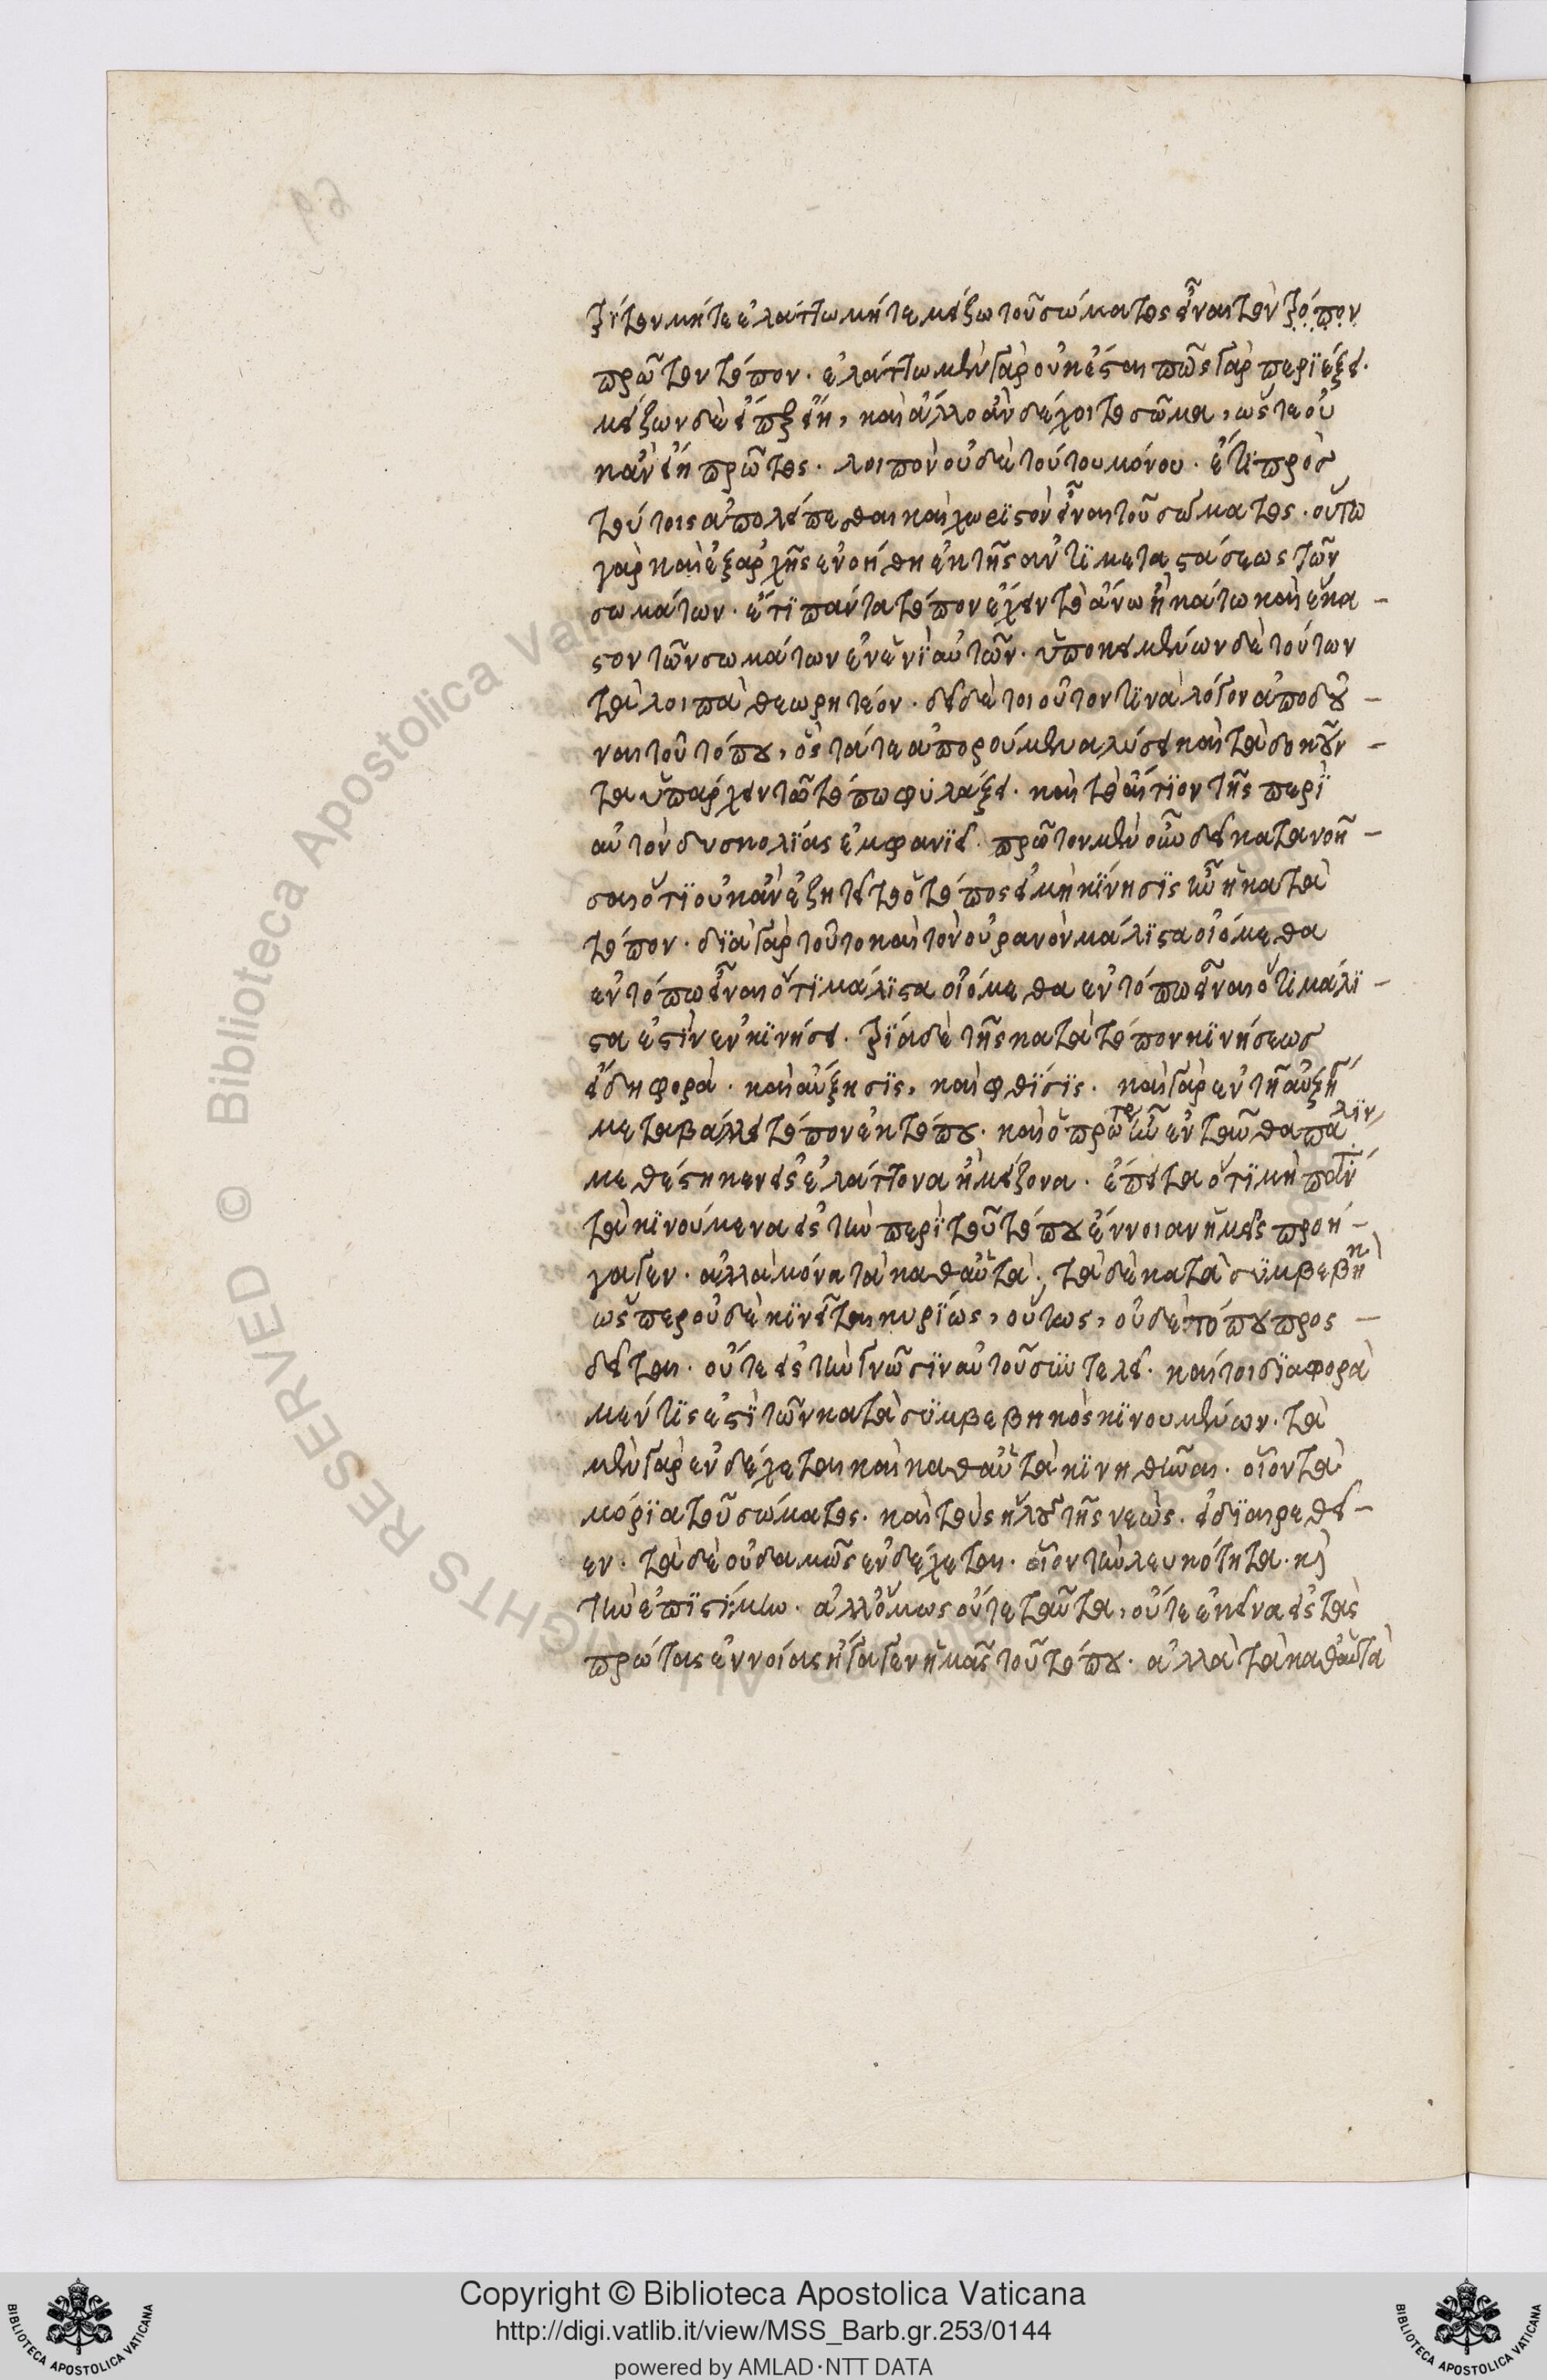 τρίτον μήτε ἐλάττω μήτε μείζω τοῦ σώματος εἶναι τὸν τρόπον
πρῶτον τόπον. ἐλάττω μὲν γὰρ οὐκ ἔσται πῶς γὰρ περιέξει.
μείζων δὲ εἴπερ εἴη, καὶ ἄλλο ἂν δέχοιτο σῶμα, ὥστε οὐ
κἂν εἴη πρῶτος. λοιπὸν οὐδὲ τούτου μόνου. ἔτι πρὸς
τούτοις ἀπολείπεσθαι καὶ χωριστὸν εἶναι τοῦ σώματος. οὕτω
γὰρ καὶ ἐξαρχῆς ἐνοήθη ἐκ τῆς ἀντιμεταστάσεως τῶν
σωμάτων. ἔτι πάντα τόπον ἔχειν τὸ ἄνω ἢ κάτω καὶ ἕκα-
στον τῶν σωμάτων ἐν ἑνὶ αὐτῶν. ὑποκειμένων δὲ τούτων
τὰ λοιπὰ θεωρητέον. δεῖ δὲ τοιοῦτον τινὰ λόγον ἀποδοῦ-
ναι τοῦ τόπου, ὃς τά τε ἀπορούμενα λύσει καὶ τὰ δοκοῦν-
τα ὑπάρχειν τῶ τόπω φυλάξει. καὶ τὸ αἴτιον τῆς περὶ
αὐτὸν δυσκολίας ἐμφανιεῖ. πρῶτον μὲν οὖν δεῖ κατανοῆ-
σαι ὅτι οὐκ ἂν ἐζητεῖτο ὁ τόπος εἰ μὴ κίνησις ἦν ἡ κατὰ
τόπον. διὰ γὰρ τοῦτο καὶ τὸν οὐρανὸν μάλιστα οἰόμεθα
ἐν τόπω εἶναι ὅτι μάλιστα οἰόμεθα ἐν τόπω εἶναι ὅτι μάλι-
στα ἐστὶν ἐν κινήσει. τρία δὲ τῆς κατὰ τόπον κινήσεως
εἴδη φορὰ. καὶ αὔξησις, καὶ φθίσις. καὶ γὰρ ἐν τῆ αὐξή
μεταβάλλει τόπον ἐκ τόπου. καὶ ὁ πρότερον ἦν ἐνταῦθα πάλιν
μεθέστηκεν εἰς ἐλάττονα ἢ μείζονα. ἔπειτα ὅτι μὴ πάντ
τὰ κινούμενα εἰς τὴν περὶ τοῦ τόπου ἔννοιαν ἡμᾶς προή-
γαγεν. ἀλλὰ μόνα τὰ καθαὑτὰ, τὰ δὲ κατὰ συμβεβηκ
ὥσπερ οὐδὲ κινεῖται κυρίως, οὕτως, οὐδὲ τόπου προς-
δεῖται. οὔτε εἰς τὴν γνῶσιν αὐτοῦ συντελεῖ. καίτοι διαφορὰ
μέν τις ἐστὶ τῶν κατὰ συμβεβηκὸς κινουμένων. τὰ
μὲν γὰρ ἐνδέχεται καὶ καθαὑτὰ κινηθῆναι. οἷον τὰ
μόρια τοῦ σώματος. καὶ τοὺς ἥλους τῆς νεὼς. εἰ διαιρεθεῖ-
εν. τὰ δὲ οὐδαμῶς ἐνδέχεται. οἷον τὴν λευκότητα. καὶ
τὴν ἐπιστήμην. ἀλλ' ὅμως οὔτε ταῦτα, οὔτε ἐκεῖνα εἰς τὰς
πρώτας ἐννοίας ἤγαγεν ἡμᾶς τοῦ τόπου. ἀλλὰ τὰ καθαὑτὰ
Copyright © Biblioteca Apostolica Vaticana
http://digi.vatlib.it/view/MSS_Barb.gr.253/0144
powered by AMLAD·NTT DATA